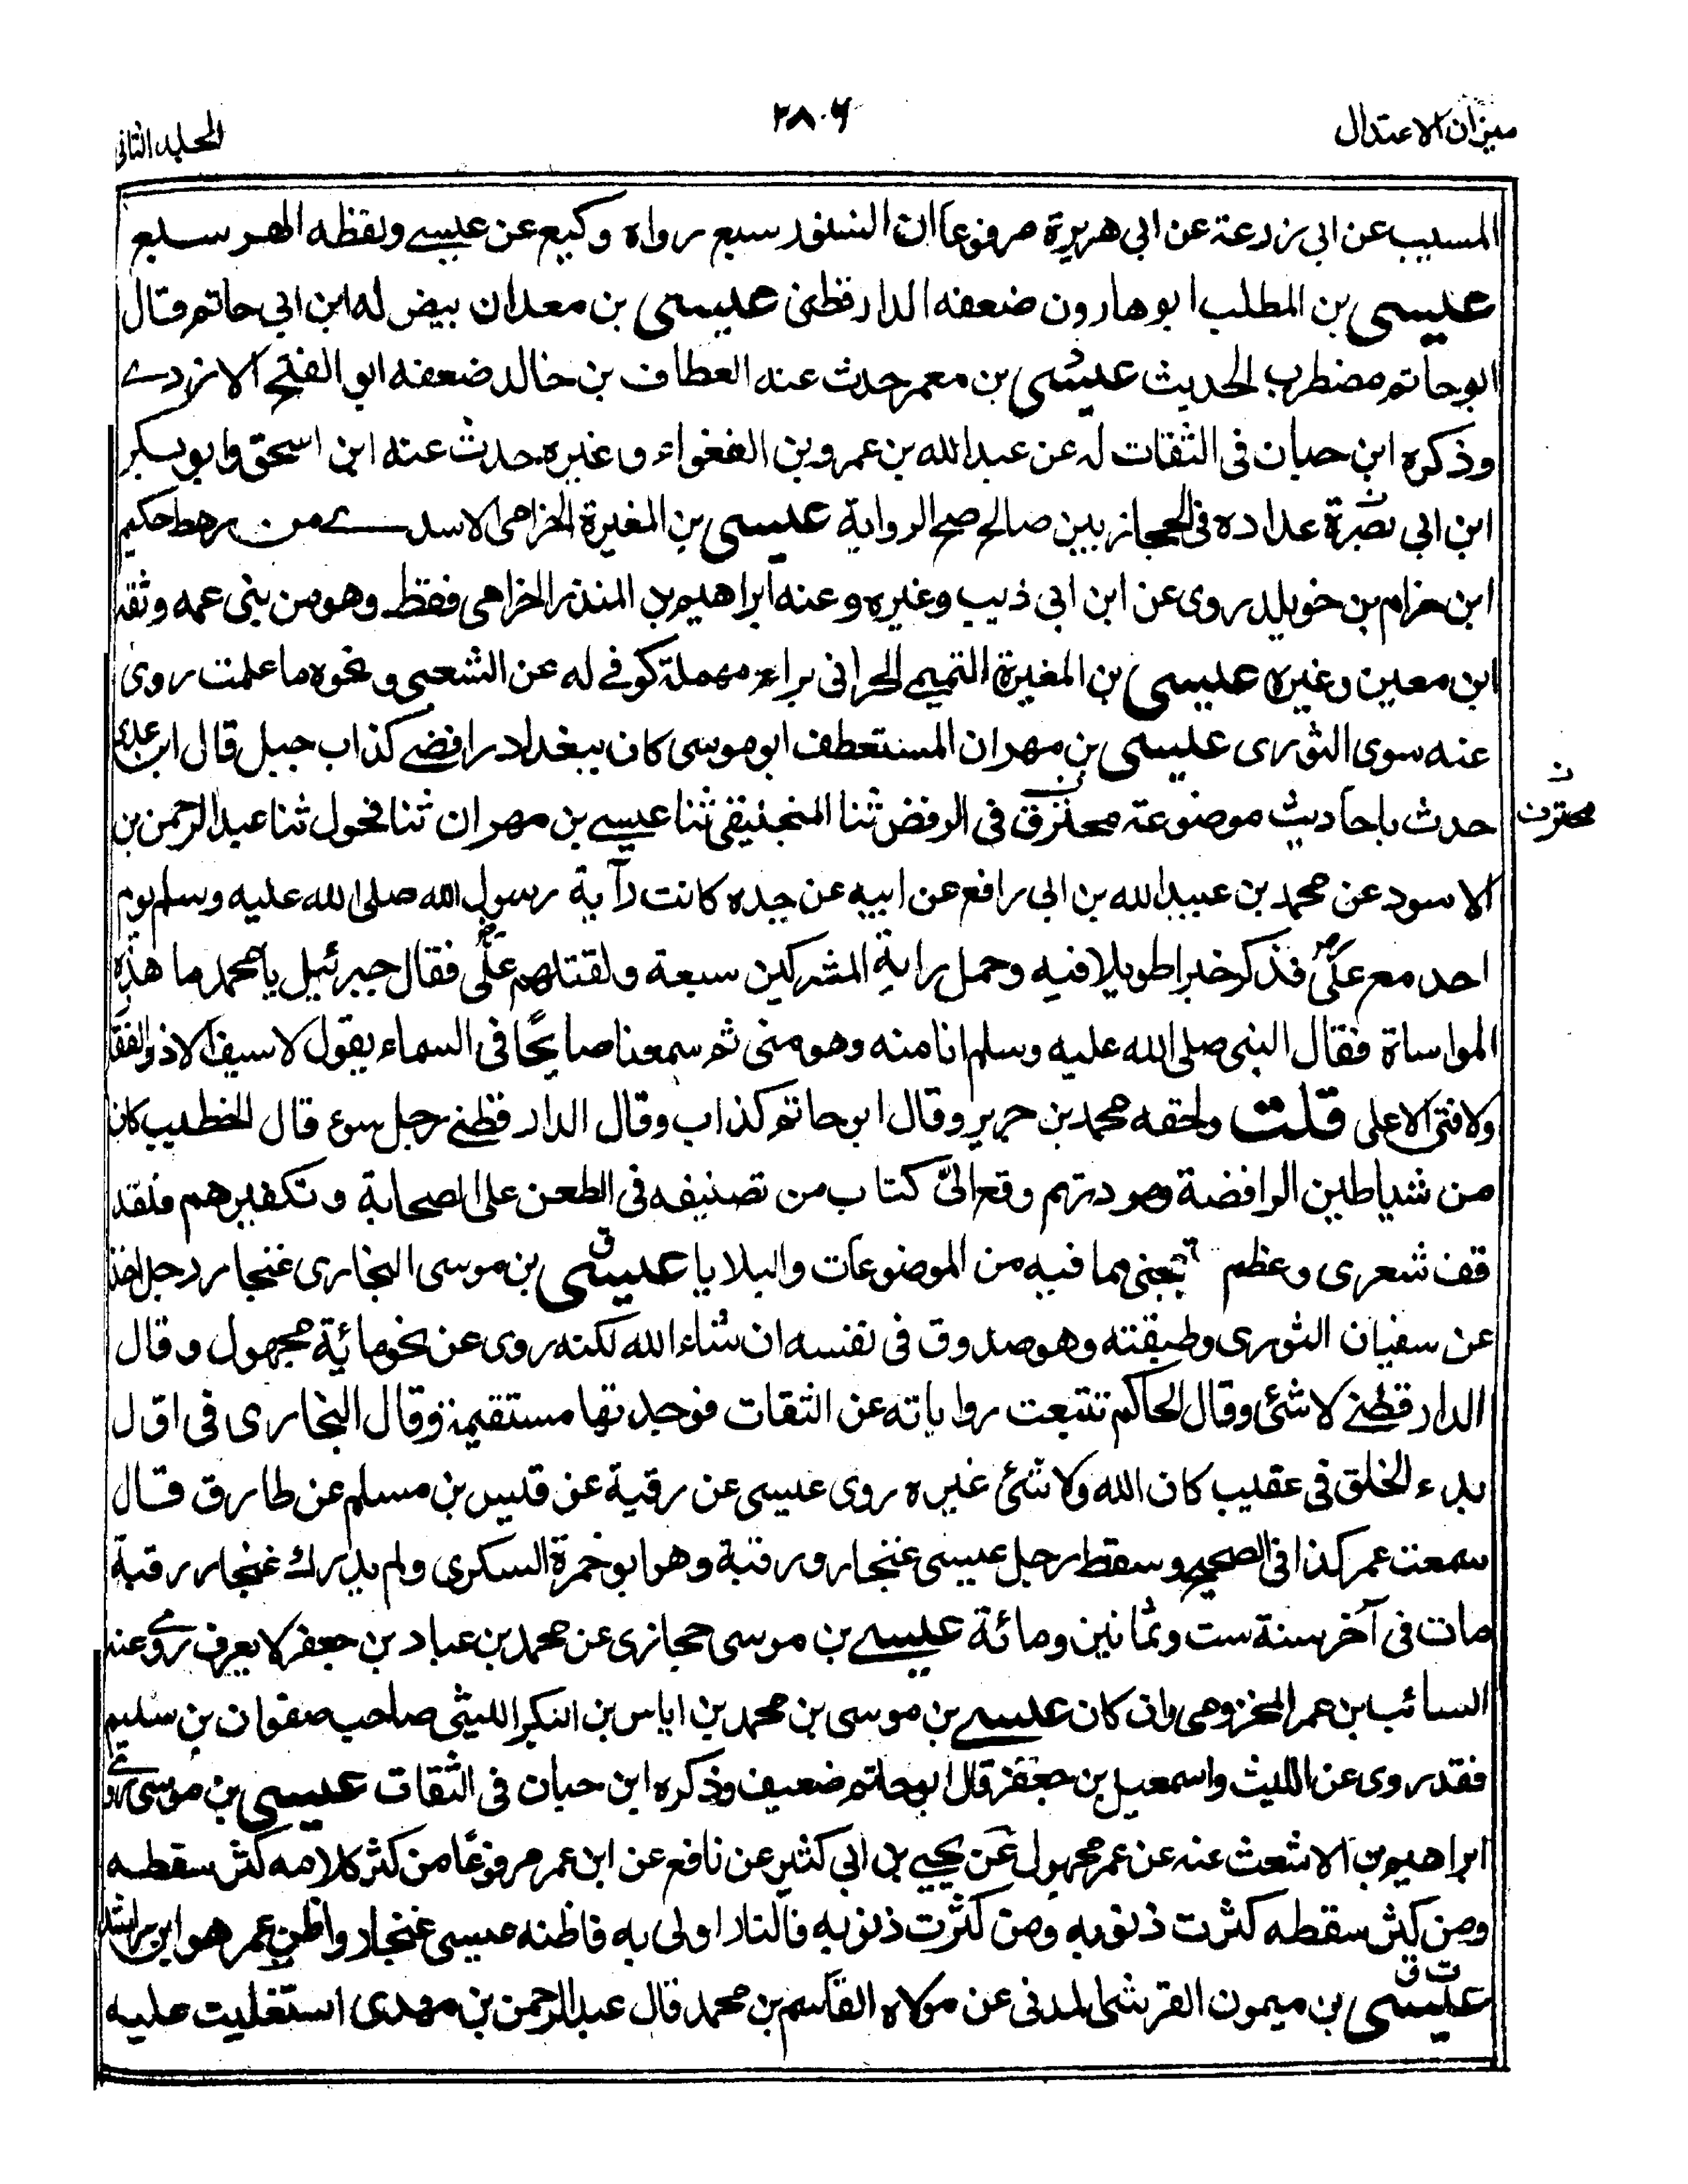 ميزان الاعتدال
٢٨٠٦
المجلد الثانى
المسيب عن ابى زرعة عن ابى هريرة مرفوعا ان السنور سبع رواه وكيع عن عيسے ولفظه الهر سبع
عيسى بن المطلب ابو هارون ضعفه الدارقطنى عيسى بن معدان بيض له ابن ابى حاتم وقال
ابو حاتم مضطرب الحديث عيسى بن معمر حدث عنه العطاف بن خالد ضعفه ابو الفتح الازدے
وذكره ابن حبان فى الثقات له عن عبد الله بن عمرو بن الفغواء وغيره حدث عنه ابن اسحق وابو بكر
ابن ابى عداده فى الحجازيين صالح الرواية عيسى بن المغيرة الحزامى الاسدے من رهط حكيم
ابن حزام بن خويلد روى عن ابن ابى ذيب وغيره وعنه ابراهيم بن المنذر الحزامى فقط وهو من بنى عمه وثقه
ابن معين وغيره عيسى بن المغيرة التميمے الحرانى براء مهملة كوفے له عن الشعبى ونحوه ما علمت روى
عنه سوى الثورى عيسى بن مهران المستعطف ابو موسى كان ببغداد رافضے كذاب جبل قال ابن عدى
حدث باحاديث موضوعة محترق فى الرفض ثنا المنجنيقى ثنا عيسے بن مهران ثنا مخول ثنا عبد الرحمن بن
محترق ن
الاسود عن محمد بن عبيد الله بن ابى رافع عن ابيه عن جده كانت رآية رسول الله صلى الله عليه وسلم يوم
احد مع علىؓ فذكر خبرا طويلا فيه وحمل راية المشركين سبعة ولقتلهم علىؓ فقال جبرئيل يا محمد ما هذه
المواساة فقال النبى صلى الله عليه وسلم انا منه وهو منى ثم سمعنا صايحًا فى السماء يقول لا سيف الا ذوالفقار
ولا فتى الا على قلت ولحقه محمد بن جرير وقال ابو حاتم كذاب وقال الدارقطنے رجل سوء قال الخطيب كان
من شياطين الرافضة ومردتهم وقع الىّ كتاب من تصنيفه فى الطعن على الصحابة وتكفيرهم فلقد
قف شعرى وعظم تعجبى مما فيه من الموضوعات والبلايا عيسى بن موسى البخارى غنجار رحل اخذ
ق
عن سفيان الثورى وطبقته وهو صدوق فى نفسه ان شاء الله لكنه روى عن نحو مائة مجهول وقال
الدارقطنے لا شئ وقال الحاكم تتبعت رواياته عن الثقات فوجدتها مستقيمة وقال البخارى فى اول
بدء الخلق فى عقيب كان الله ولا شئ غيره روى عيسى عن رقبة عن قيس بن مسلم عن طارق قال
سمعت عمر كذا فى الصحيح وسقط رجل عيسى غنجار ورقبة وهو ابو حمزة السكرى ولم يدرك غنجار رقبة
مات فى آخر سنة ست وثمانين ومائة عيسے بن موسى حجازى عن محمد بن عباد بن جعفر لا يعرف روى عنه
السائب بن عمر المخزومى وان كان عيسے بن موسى بن محمد بن اياس بن البكير الليثى صاحب صفوان بن سليم
فقد روى عن الليث واسمعيل بن جعفر قال ابو حاتم ضعيف وذكره ابن حبان فى الثقات عيسى بن موسى روى
ابراهيم بن الاشعث عنه عن عمر مجهول عن يحيے بن ابى كثير عن نافع عن ابن عمر مرفوعًا من كثر كلامه كثر سقطه
ومن كثر سقطه كثرت ذنوبه ومن كثرت ذنوبه فالنار اولى به فاظنه عيسى غنجار واظن عمر هو ابن راشد
ت ق
عيسى بن ميمون القرشى المدنى عن مولاه القاسم بن محمد قال عبد الرحمن بن مهدى استغليت عليه